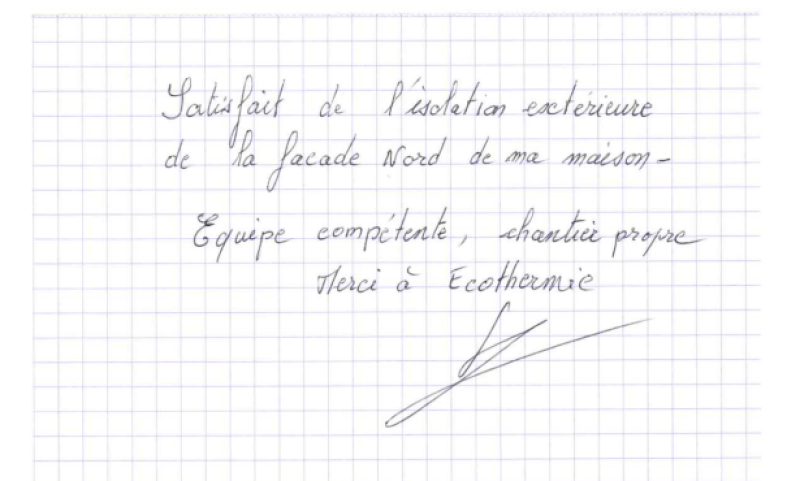 Satisfait de l'isolation extérieure
de la facade Nord de ma maison -
Equipe compétente, chantier propre
Merci à Ecothermie